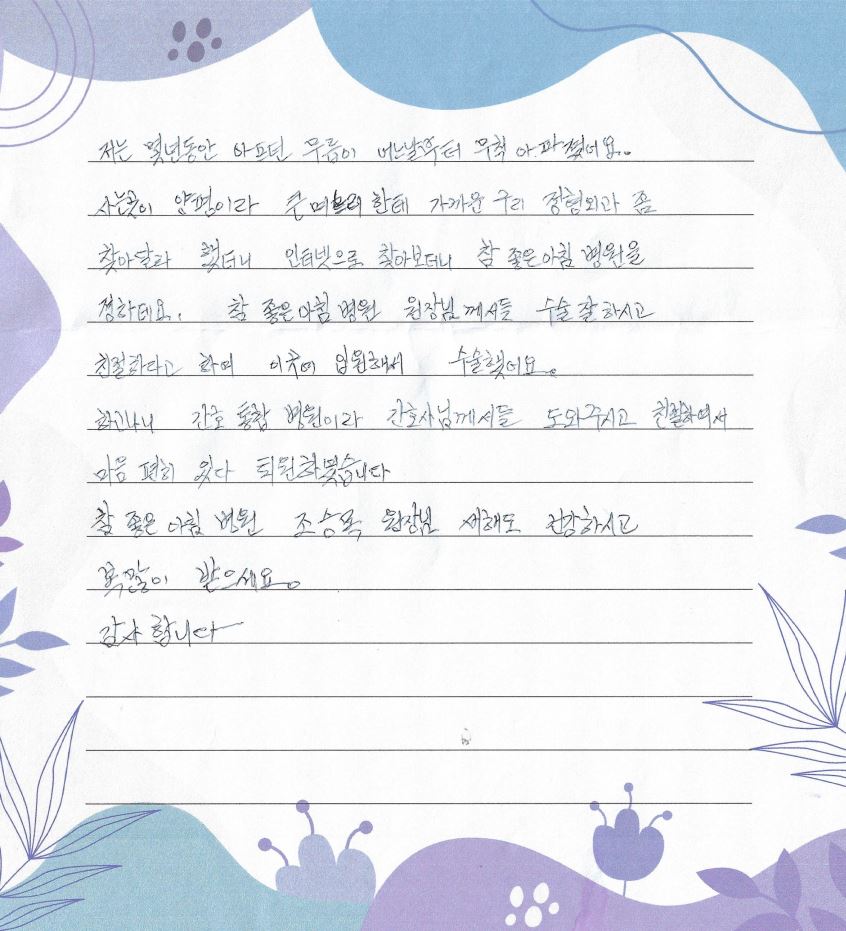 저는 몇년동안 아프던 무릎이 어느날부터 무척 아.파졌어요.
사는곳이 양평이라 큰며느리한테 가까운 구리 정형외과 좀
찾아달라 했더니 인터넷으로 찾아보더니 참 좋은아침 병원을
정하데요. 참 좋은아침 병원 원장님께서들 수술 잘하시고
친절하다고 하며 이곳에 입원해서 수술했어요.
하고나니 간호 통합 병원이라 간호사님께서들 도와주시고 친절하여서
마음 편히 있다 퇴원하빛습니다
참 좋은 아침 병원 조승목 원장님 새해도 건강하시고
복많이 받으세요.
감사 합니다